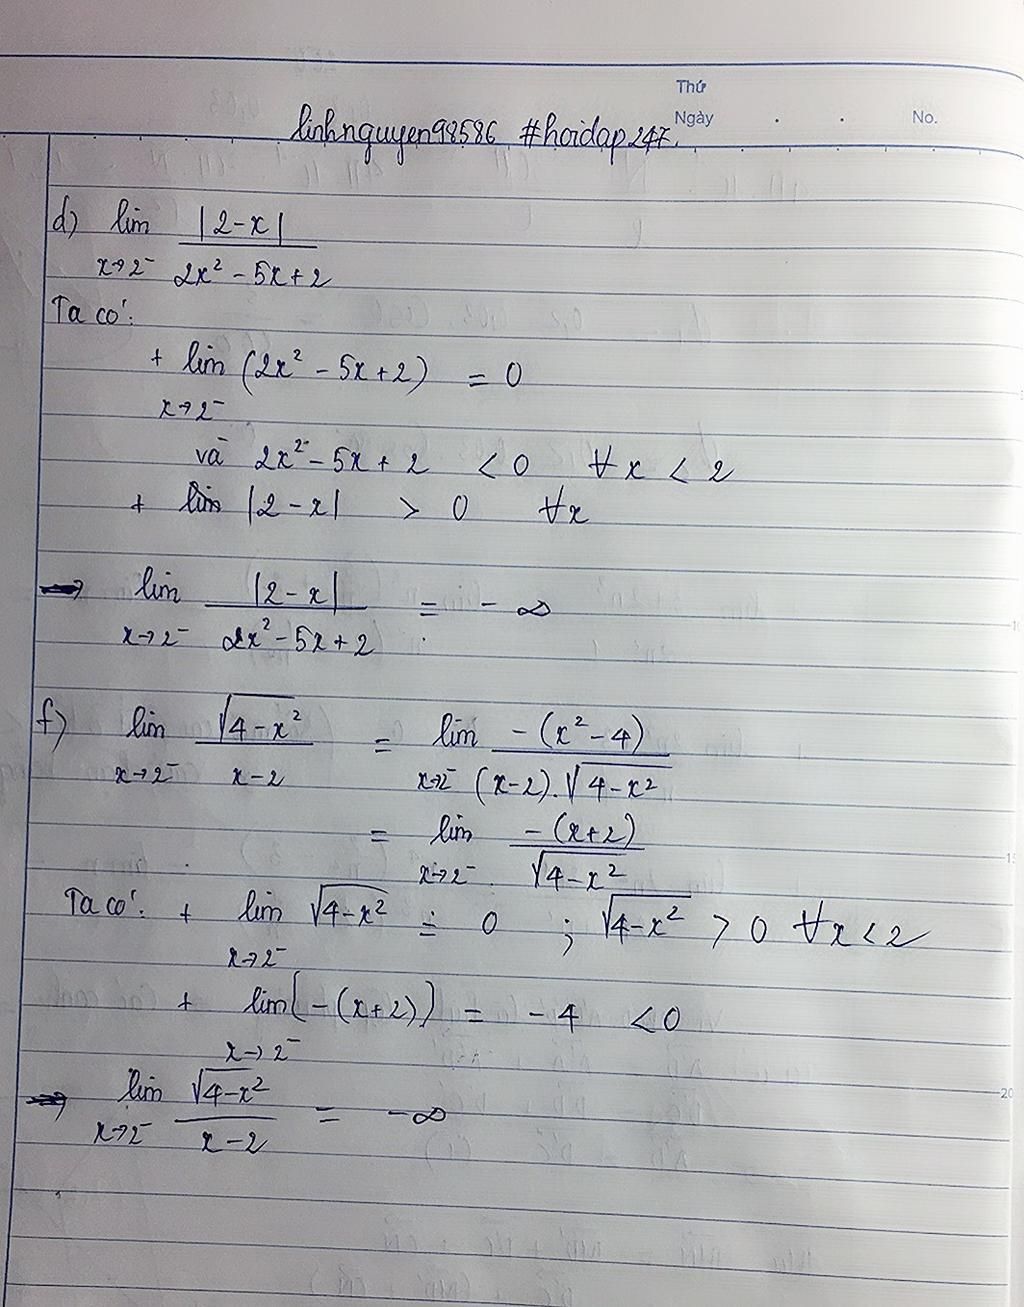 Thứ
Ngày . . No.
linhnguyen98586 #hoidap247.
d) lim |2-x| / 2x² - 5x + 2
x→2⁻
Ta có:
+ lim (2x² - 5x + 2) = 0
x→2⁻
và 2x² - 5x + 2 < 0 ∀x < 2
+ lim |2-x| > 0 ∀x
→ lim |2-x| / 2x² - 5x + 2 = -∞
x→2⁻
f) lim √4-x² / x-2 = lim -(x²-4) / (x-2).√4-x²
x→2⁻ x→2⁻
= lim -(x+2) / √4-x²
x→2⁻
Ta có: + lim √4-x² = 0 ; √4-x² > 0 ∀x<2
x→2⁻
+ lim[-(x+2)] = -4 <0
x→2⁻
→ lim √4-x² / x-2 = -∞
x→2⁻
15
20